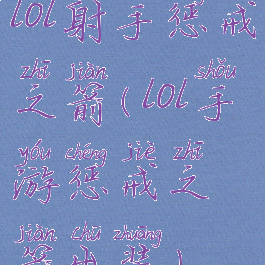 lol射手惩戒
zhī jiàn shǒu
之箭(lol手
yóu chéng jiè zhī
游惩戒之
jiàn chū zhuāng
箭出装)